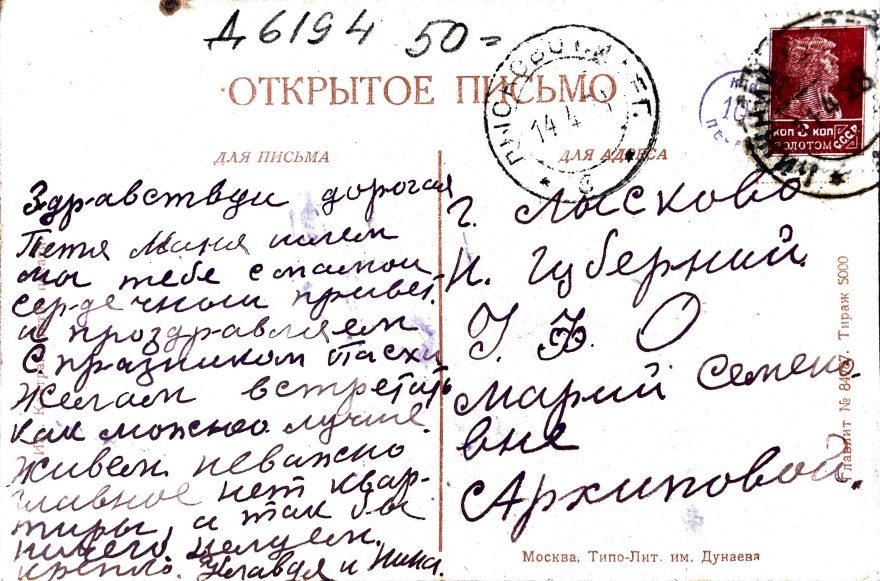 Д6194 50=
ОТКРЫТОЕ ПИСЬМО
ДЛЯ ПИСЬМА
ДЛЯ АДРЕСА
Здравствуи дорогая
Тетя Маня шлем
мы тебе с мамои
сердечныи привет.
и проздравляем
С празником Пасхи
Желаем встретить
как можно лучше.
Живем неважно
главное нет квар-
тиры, а так бы
ничего целуем
крепко. Клавдя и Нина.
г. Лысково
Н. Губерний.
У. Ф. О
Марий Семено-
вне
Архиповой.
14 4
6
КОП 3 КОП
ЗОЛОТОМ
СССР
НИЖНИЙ
Главлит № Тираж 5000
Москва, Типо-Лит. им. Дунаева